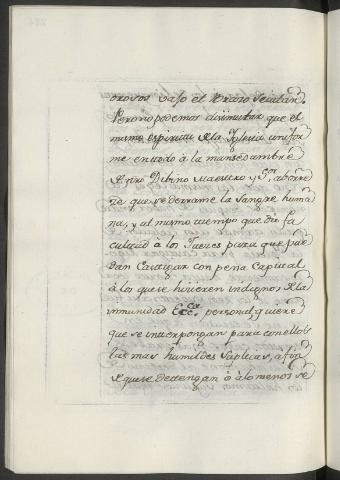 orosos vajo el brazo Secular.
Pero no podemos disimular que el
mismo espiritu de la Iglesia unifor
me en todo à la mansedumbre
de ntro Divino Maestro y Sor. aborre
ze que se derrame la Sangre huma
na, y al mismo tiempo que dio fa
cultad à los Juezes para que pue
dan Castigar con pena Capital
à los que se hicieren indignos de la
inmunidad Ecca. personal, quiere
que se interpongan para con ellos
las mas humildes Suplicas, a fin
de que se detengan ò à lo menos se